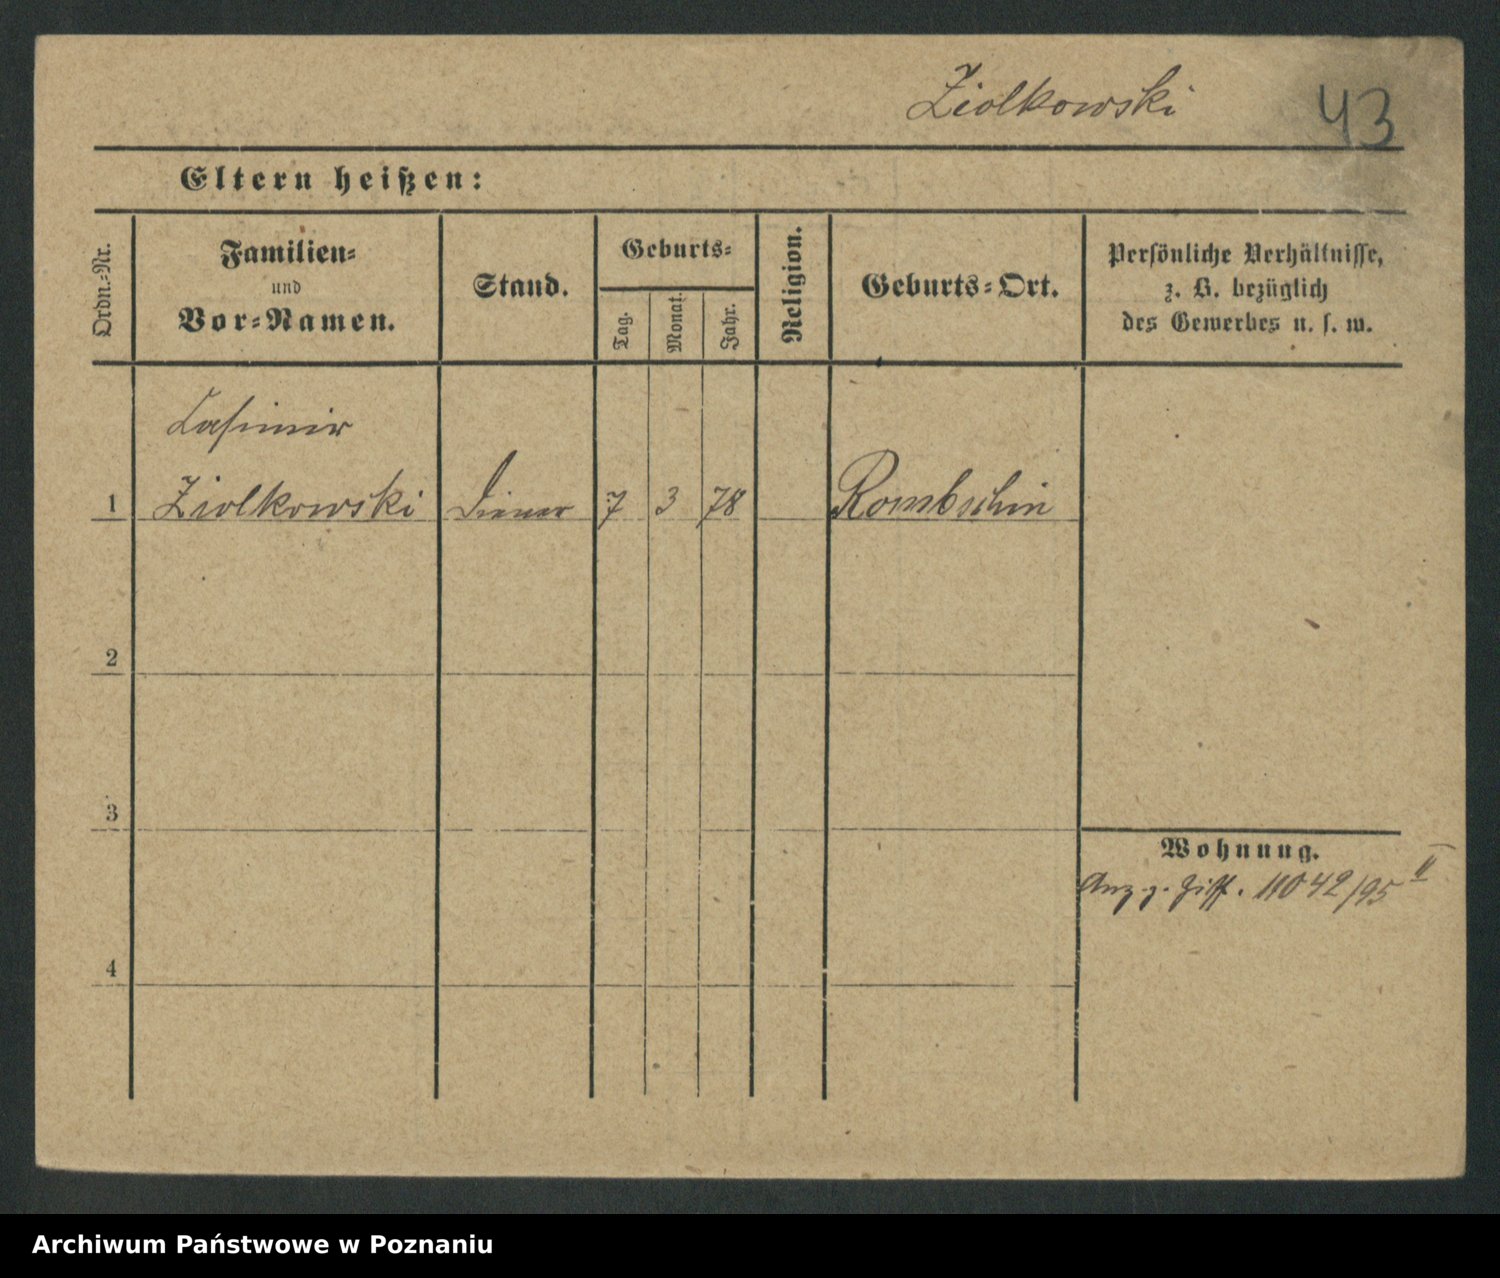 Ziolkowski 43
Eltern heißen:
Ordn.-Nr.
Familien-
und
Vor-Namen.
Stand.
Geburts-
Tag.
Monat.
Jahr.
Religion.
Geburts-Ort.
Persönliche Verhältnisse,
z. B. bezüglich
des Gewerbes u. s. w.
Casimir
1 Ziolkowski Diener 7 3 78 Rombschin
2
3
Wohnung.
11042/95 II
4
Archiwum Państwowe w Poznaniu